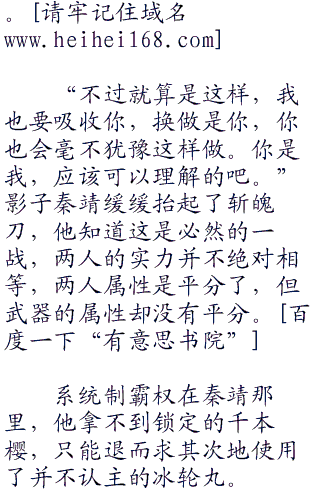 。[请牢记住域名
www.heihei168.com]
“不过就算是这样，我
也要吸收你，换做是你，你
也会毫不犹豫这样做。你是
我，应该可以理解的吧。”
影子秦靖缓缓抬起了斩魄
刀，他知道这是必然的一
战，两人的实力并不绝对相
等，两人属性是平分了，但
武器的属性却没有平分。[百
度一下“有意思书院”]
系统制霸权在秦靖那
里，他拿不到锁定的千本
樱，只能退而求其次地使用
了并不认主的冰轮丸。